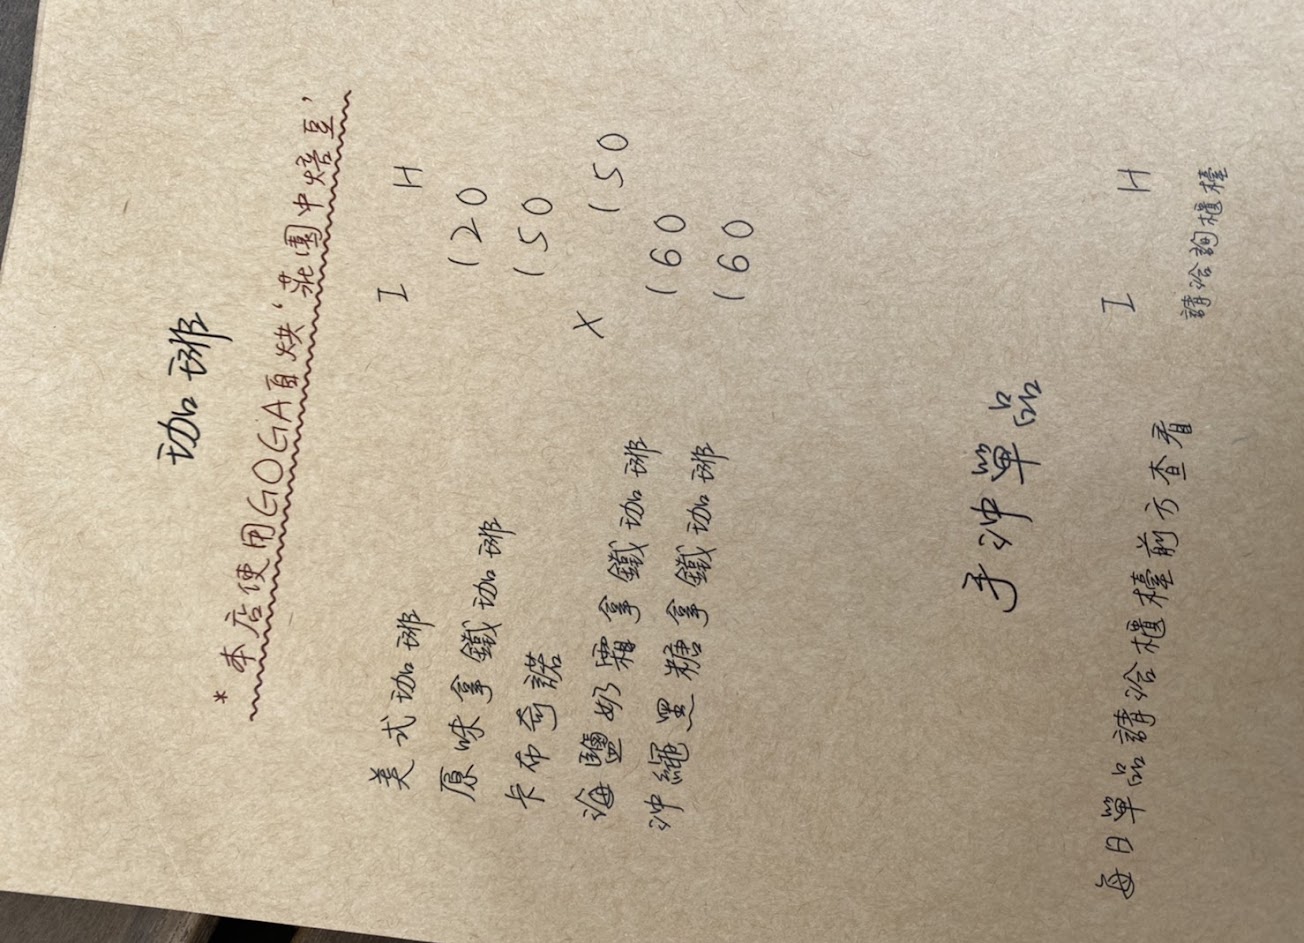 珈琲
*本店使用GOGA自烘‘莊園中焙豆’
I H
美式珈琲 120
原味拿鐵珈琲 150
卡布奇諾 X 150
海鹽奶霜拿鐵珈琲 160
沖繩黑糖拿鐵珈琲 160
手沖單品
I H
每日單品請洽櫃檯前方查看 請洽詢櫃檯